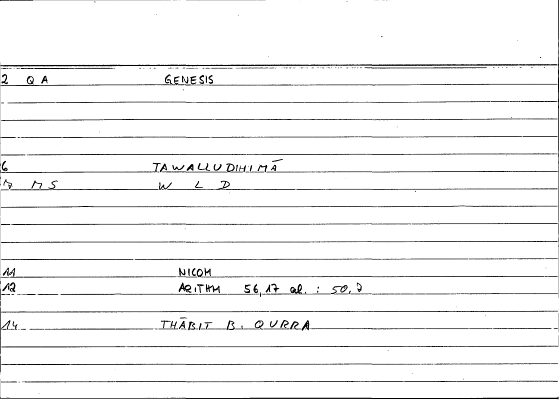 2 QA GENESIS
6 TAWALLUDIHIMĀ
7 MS W L D
11 NICOM
12 ARITHM 56,17 al. : 50,7
14 THĀBIT B. QURRA